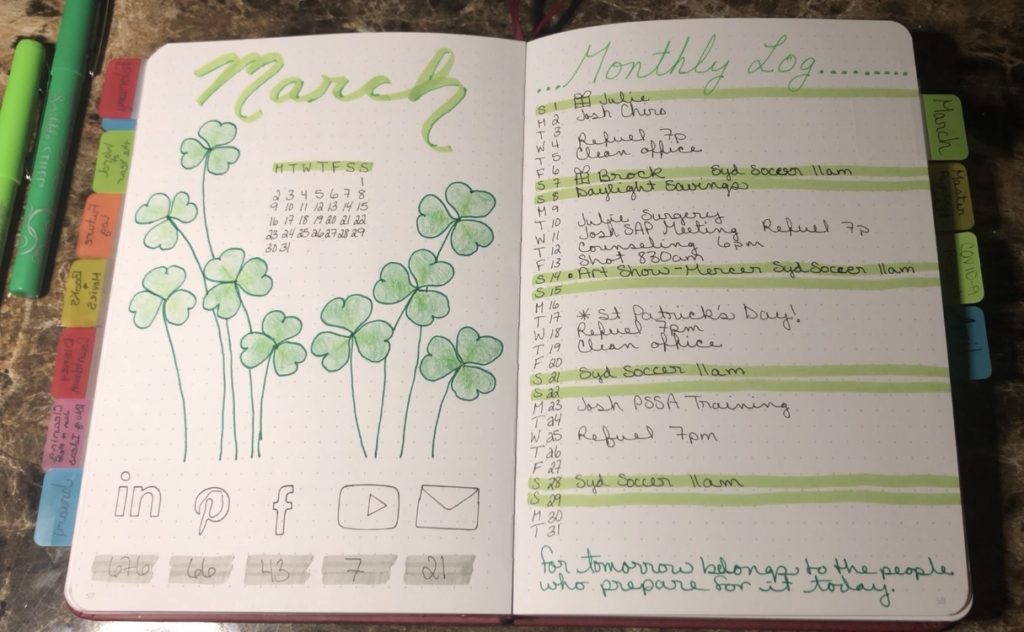 March
M T W T F S S
1
2 3 4 5 6 7 8
9 10 11 12 13 14 15
16 17 18 19 20 21 22
23 24 25 26 27 28 29
30 31
in
f
676 66 43 7 21
57
...Monthly Log.........
S 1 Julie
M 2 Josh Chiro
T 3
W 4 Refuel 7p
T 5 Clean office
F 6
S 7 Brock Syd Soccer 11am
S 8 Daylight Savings
M 9
T 10 Julie Surgery
W 11 Josh SAP Meeting Refuel 7p
T 12 Counseling 6pm
F 13 Shot 830am
S 14 • Art Show - Mercer Syd Soccer 11am
S 15
M 16
T 17 * St Patrick's Day!
W 18 Refuel 7pm
T 19 Clean office
F 20
S 21 Syd Soccer 11am
S 22
M 23 Josh PSSA Training
T 24
W 25 Refuel 7pm
T 26
F 27
S 28 Syd Soccer 11am
S 29
M 30
T 31
for tomorrow belongs to the people
who prepare for it today.
58
March
Master
Covid
Future
Books